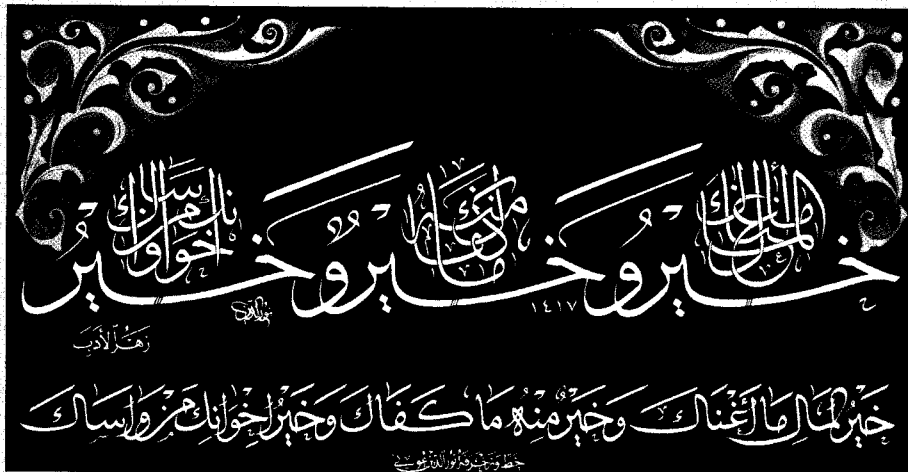 خير المال ما أغناك وخير منه ما كفاك وخير إخوانك من واساك
١٤١٧
زَهْرُ الأَدَبِ
خَيْرُ المَالِ مَا أَغْنَاكَ وَخَيْرٌ مِنْهُ مَا كَفَاكَ وَخَيْرُ إِخْوَانِكَ مَنْ وَاسَاكَ
خط وزخرفة نور الدين